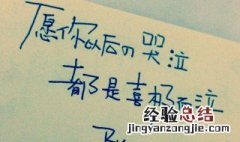 愿你以后の哭泣
都是喜极而泣
经验总结
jingyanzongjie.com